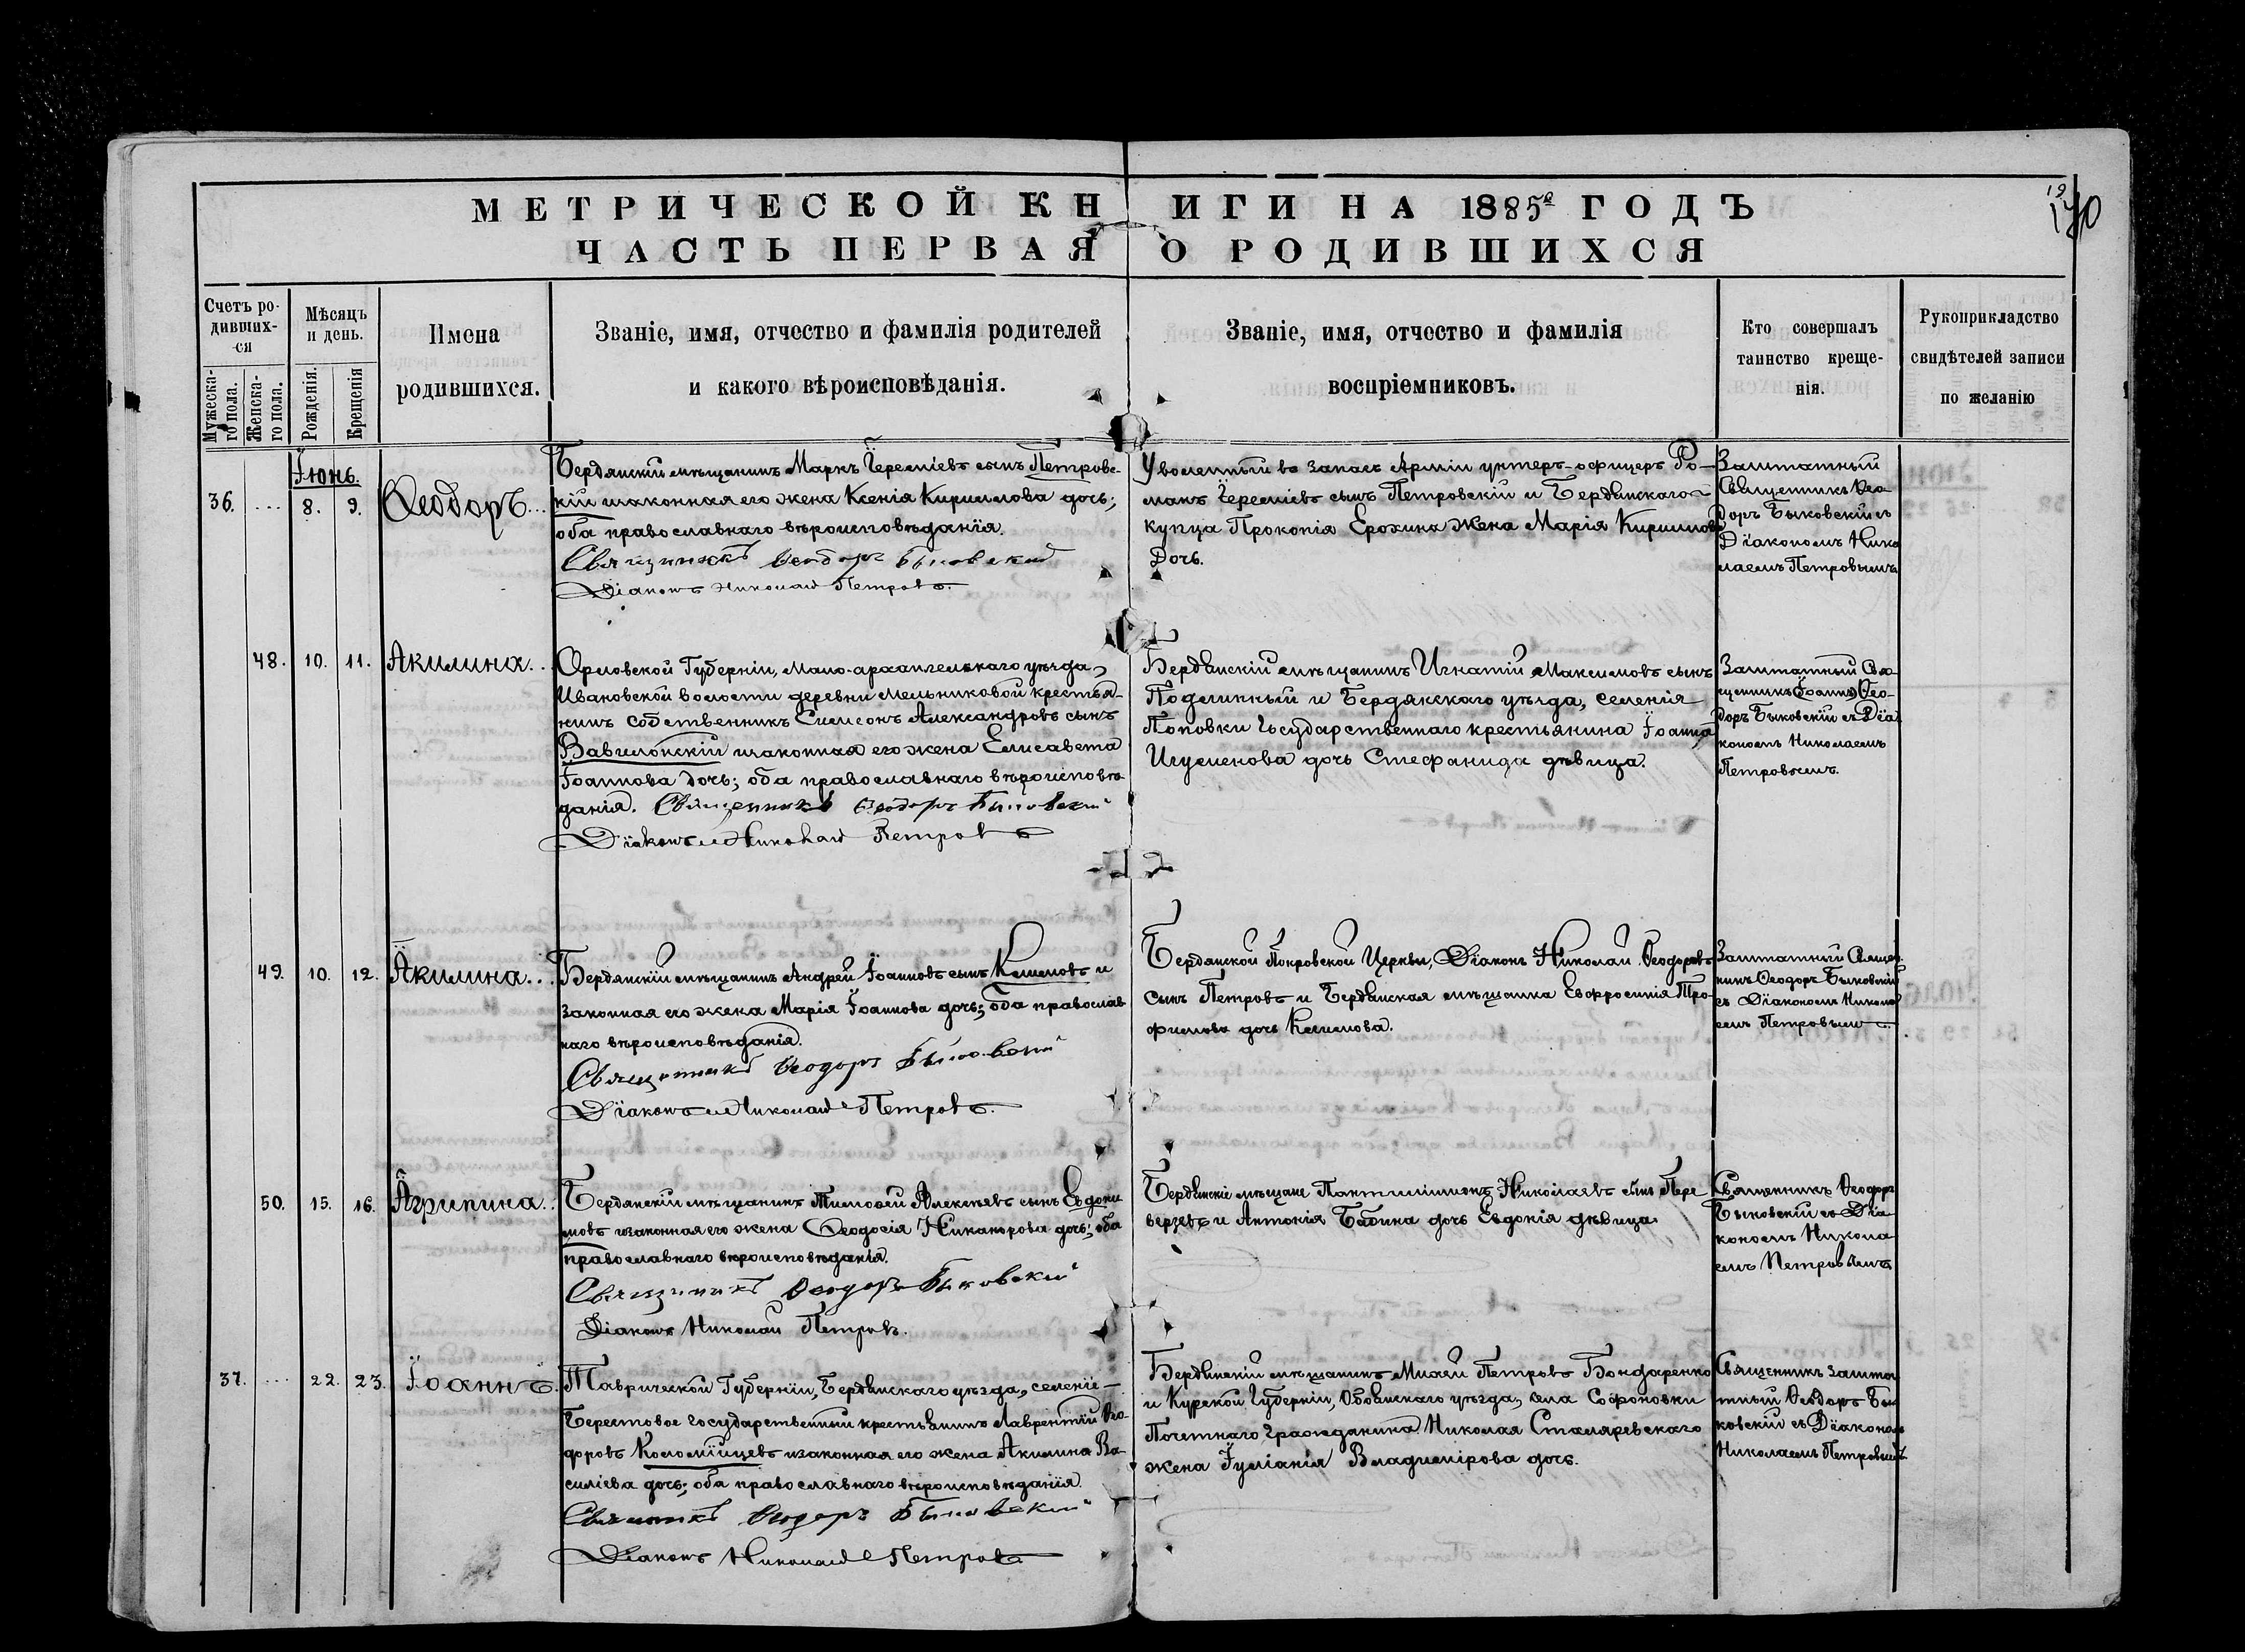 МЕТРИЧЕСКОЙ КНИГИ НА 1885й ГОДЪ
12
170
ЧАСТЬ ПЕРВАЯ О РОДИВШИХСЯ
Счетъ ро-
дивших-
ся
Мужеска-
го пола.
Женска-
го пола.
Мѣсяцъ
и день.
Рожденія.
Крещенія
Имена
родившихся.
Званіе, имя, отчество и фамилія родителей
и какого вѣроисповѣданія.
Званіе, имя, отчество и фамилія
воспріемниковъ.
Кто совершалъ
таинство креще-
нія.
Рукоприкладство
свидѣтелей записи
по желанію
Іюнь.
36. ... 8. 9. Ѳеодоръ...
Бердянскій мѣщанинъ Маркъ Іереміевъ сынъ Петровс-
кій изаконная его жена Ксенія Кириллова дочь;
оба православнаго вѣроисповѣданія.
Священникъ Ѳеодоръ Быковскій
Діаконъ Николай Петровъ.
Уволенный въ запасъ Арміи унтеръ-офицеръ Ро-
манъ Іереміевъ сынъ Петровскій и Бердянскаго
купца Прокопія Ерохина жена Марія Кириллова
Дочь.
Заштатный
Священникъ Ѳео
доръ Быковскій съ
Діакономъ Нико
лаемъ Петровымъ
48. 10. 11. Акилина..
Орловской Губерніи, Мало-архангельскаго уѣзда,
Ивановской волости деревни Мельниковой крестья-
нинъ собственникъ Симеонъ Александровъ сынъ
Вавилонскій изаконная его жена Елисавета
Іоаннова дочь; оба православнаго вѣроисповѣ-
данія. Священникъ Ѳеодоръ Быковскій
Діаконъ Николай Петровъ
Бердянскій мѣщанинъ Игнатій Максимовъ сынъ
Подлинный и Бердянскаго уѣзда, селенія
Поповки Государственнаго крестьянина Іоанна
Игуменова дочь Стефанида дѣвица.
Заштатный Свя-
щенникъ Ѳео-
доръ Быковскій съ Діа
кономъ Николаемъ
Петровымъ.
49. 10. 12. Акилина...
Бердянскій мѣщанинъ Андрей Іоанновъ сынъ Климовъ и
законная его жена Марія Іоаннова дочь; оба православ
наго вѣроисповѣданія.
Священникъ Ѳеодоръ Быковскій
Діаконъ Николай Петровъ.
Бердянской Покровской Церкви, Діаконъ Николай Ѳеодоровъ
сынъ Петровъ и Бердянская мѣщанка Евфросинія Тро-
фимова дочь Климова.
Заштатный Священ
никъ Ѳеодоръ Быковскій
съ Діакономъ Никола
емъ Петровым
50. 15. 16. Агрипина..
Бердянскій мѣщанинъ Тимоѳей Алексѣевъ сынъ Евдоки
мовъ изаконная его жена Ѳеодосія Никанорова дочь; оба
православнаго вѣроисповѣданія.
Священникъ Ѳеодоръ Быковскій
Діаконъ Николай Петровъ.
Бердянскіе мѣщане Николаевъ сынъ Пере
верзевъ и Антонія Бабина дочь Евдокія дѣвица.
Священникъ Ѳеодоръ
Быковскій съ Діа
кономъ Никола
емъ Петровымъ
37. ... 22. 23. Іоаннъ.
Таврической Губерніи, Бердянскаго уѣзда, селеніе
Берестовое Государственный крестьянинъ Лаврентій Ѳео-
доровъ Коломійцевъ изаконная его жена Акилина Ва-
силіева дочь; оба православнаго вѣроисповѣданія.
Священникъ Ѳеодоръ Быковскій
Діаконъ Николай Петровъ
Бердянскій мѣщанинъ Михей Петровъ Бондаренко
и Курской Губерніи, Обоянскаго уѣзда, села Софоновки
Почетнаго гражданина Николая Столяревскаго
жена Іуліанія Владимірова дочь.
Священникъ зашта
тный Ѳеодоръ Бы-
ковскій съ Діаконом
Николаемъ Петровымъ